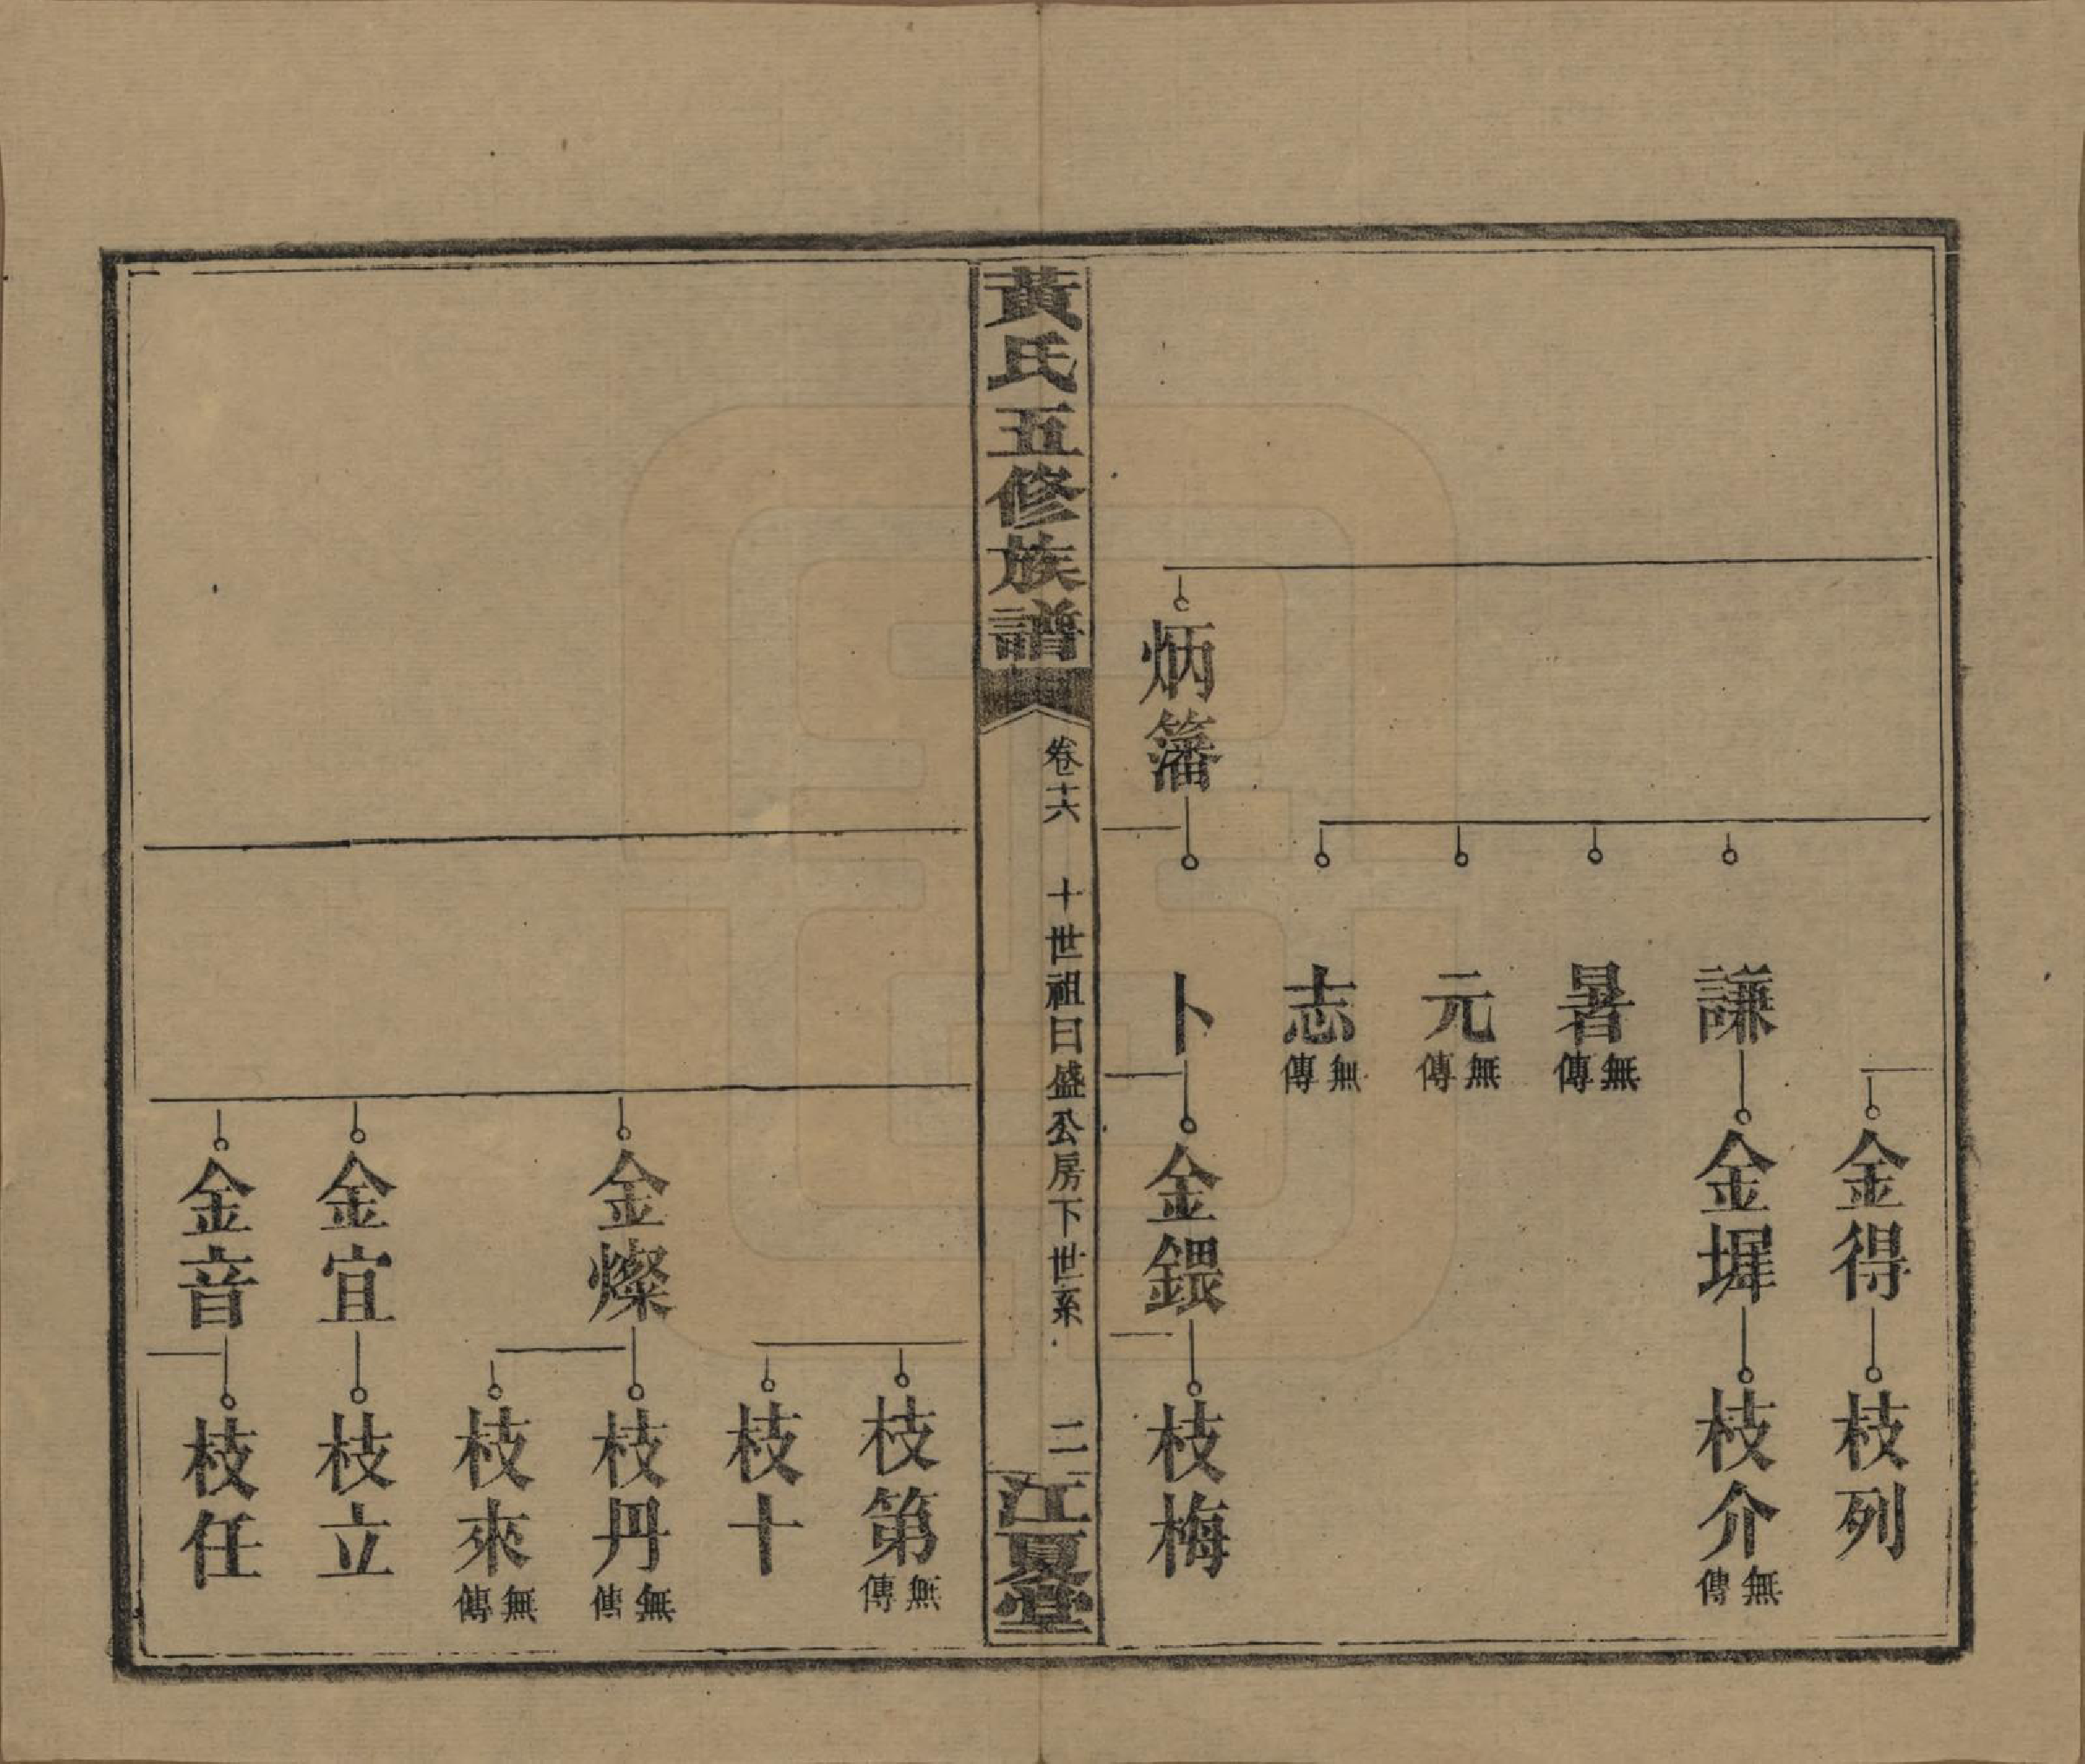 金得
枝列
謙
金墀
枝介無傳
暑無傳
元無傳
志無傳
炳籓
卜
金鍡
枝梅
黃氏五修族譜
卷十六
十世祖日盛公房下世系
二
江夏堂
枝第無傳
枝十
金燦
枝丹無傳
枝來無傳
金宜
枝立
金音
枝任